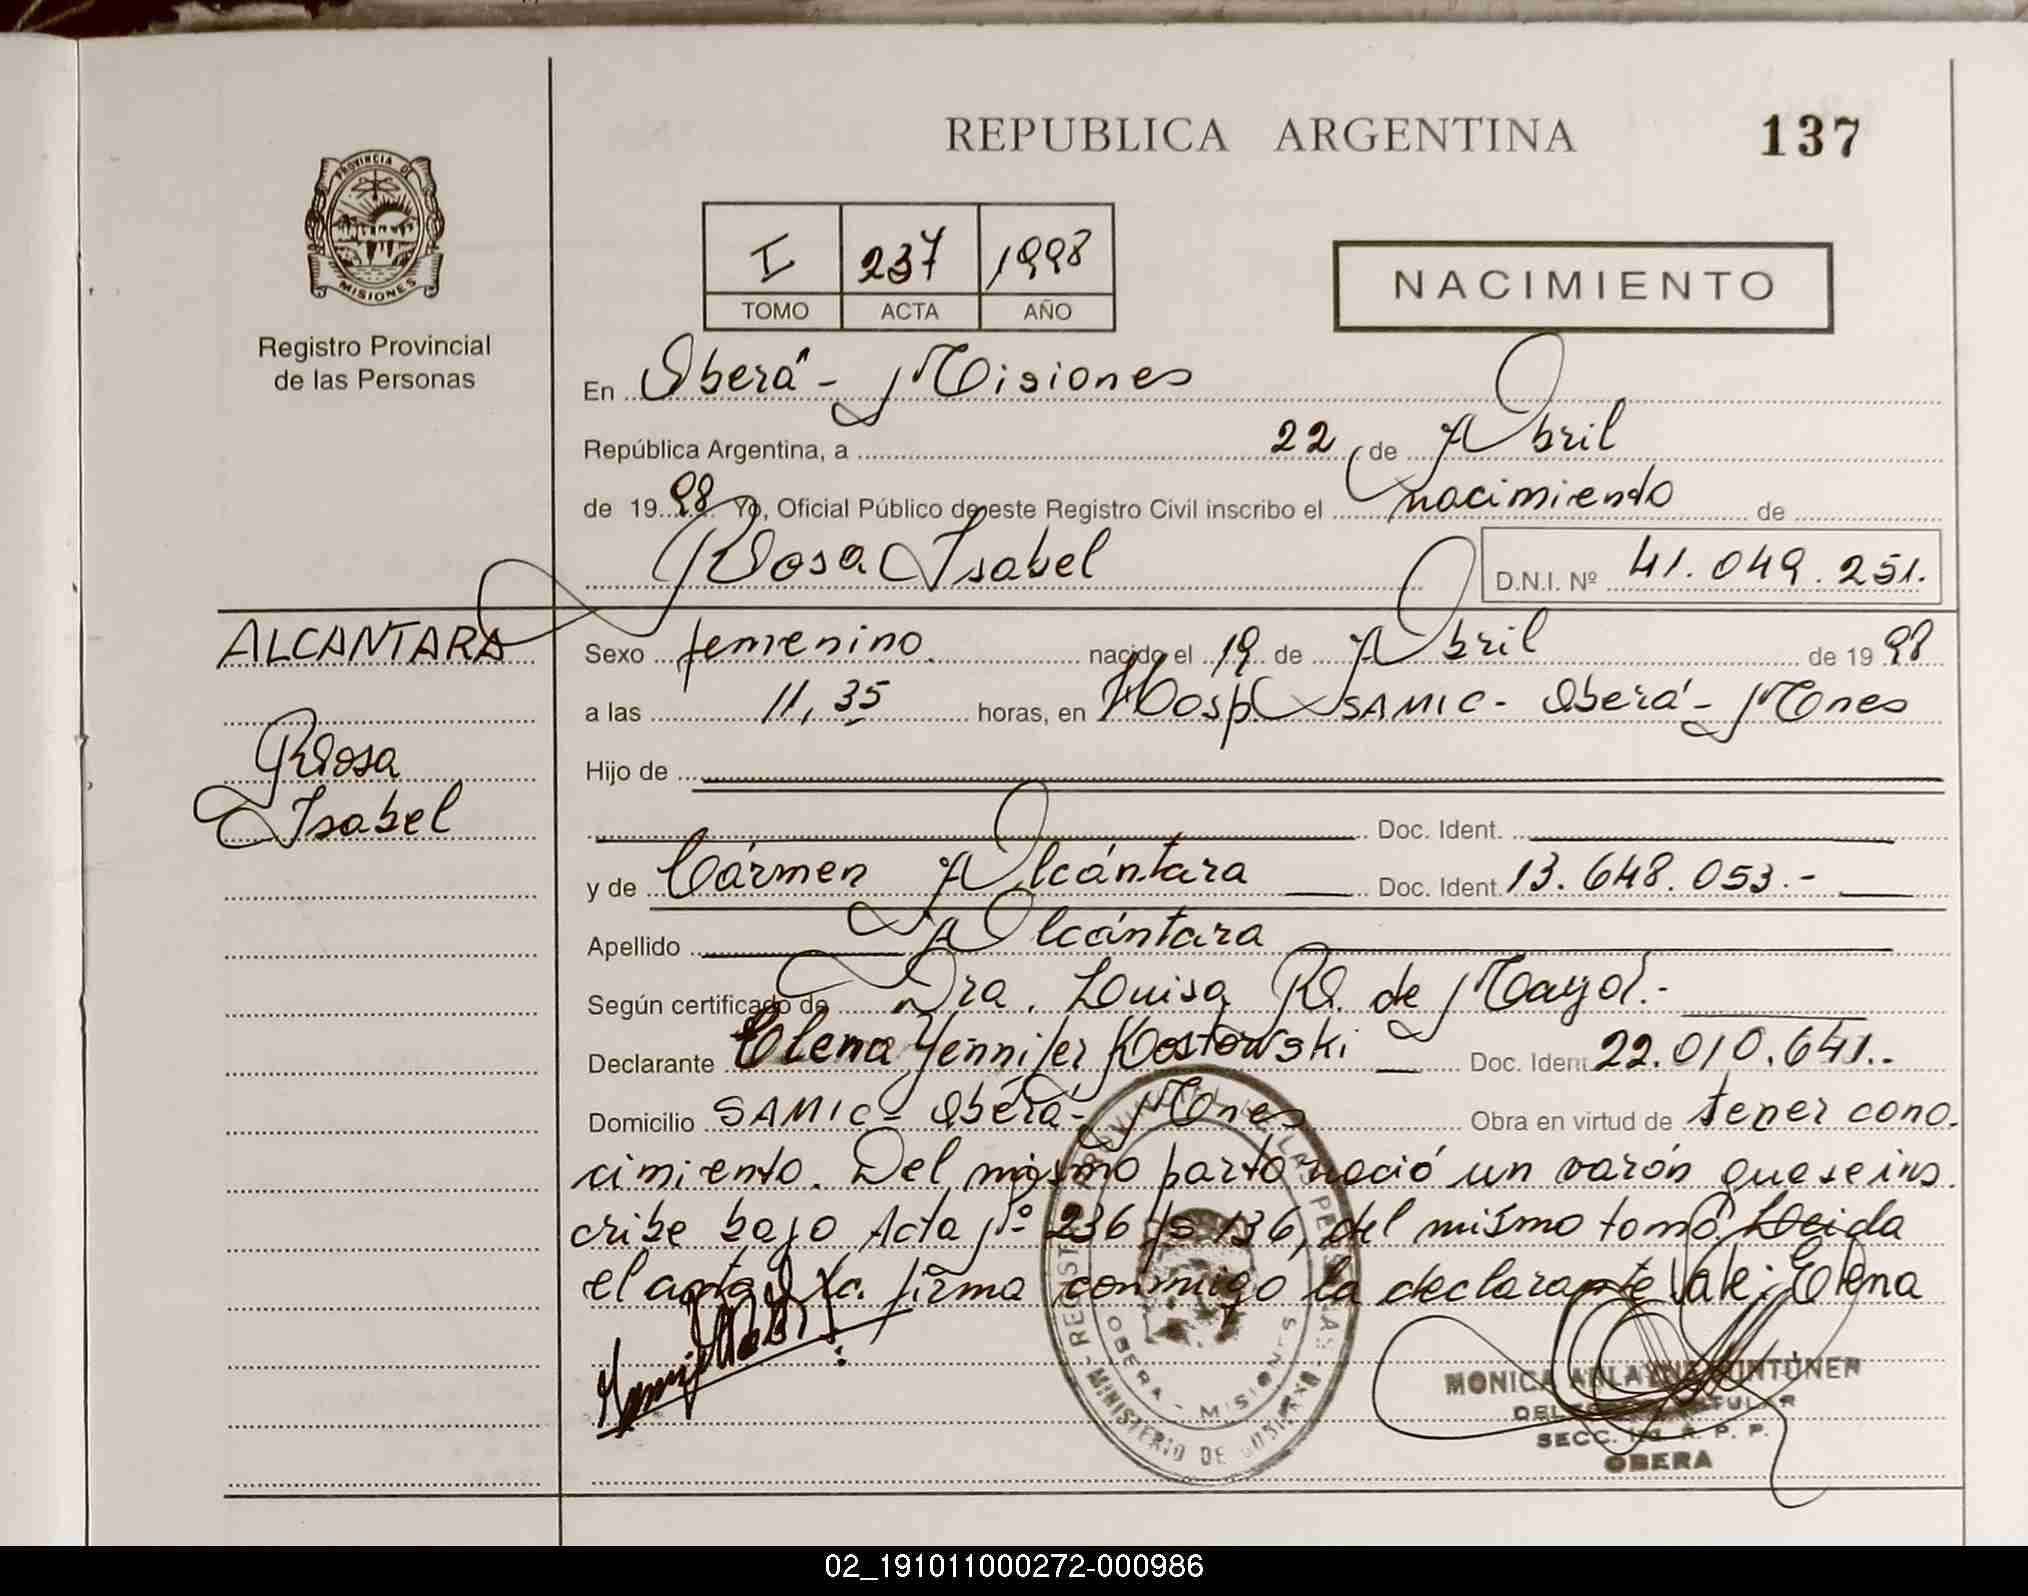 REPUBLICA ARGENTINA
137
PROVINCIA DE
MISIONES
Registro Provincial
de las Personas
I 237 1998
TOMO ACTA AÑO
NACIMIENTO
En Oberá - Misiones
República Argentina, a 22 de Abril
de 19 98 Yo, Oficial Público de este Registro Civil inscribo el nacimiento de
Rosa Isabel
D.N.I. Nº 41.049.251.
ALCANTARA
Rosa
Isabel
Sexo femenino. nacido el 19 de Abril de 19 98
a las 11,35 horas, en Hosp. SAMIC - Oberá - Mnes
Hijo de
Doc. Ident.
y de Cármen Alcántara Doc. Ident. 13.648.053.-
Apellido Alcántara
Según certificado de Dra. Luisa R. de Mayol.-
Declarante Elena Yennifer Kostowski Doc. Ident. 22.010.641.-
Domicilio SAMIC - Oberá - Mnes Obra en virtud de tener cono-
cimiento. Del mismo parto nació un varón que se ins-
cribe bajo Acta Nº 236 fº 136, del mismo tomo. Leida
el acta firma conmigo la declarante Vale: Elena
OBERA - MISIONES
MINISTERIO DE
MONICA
SECC. R. P. P.
OBERA
02_191011000272-000986